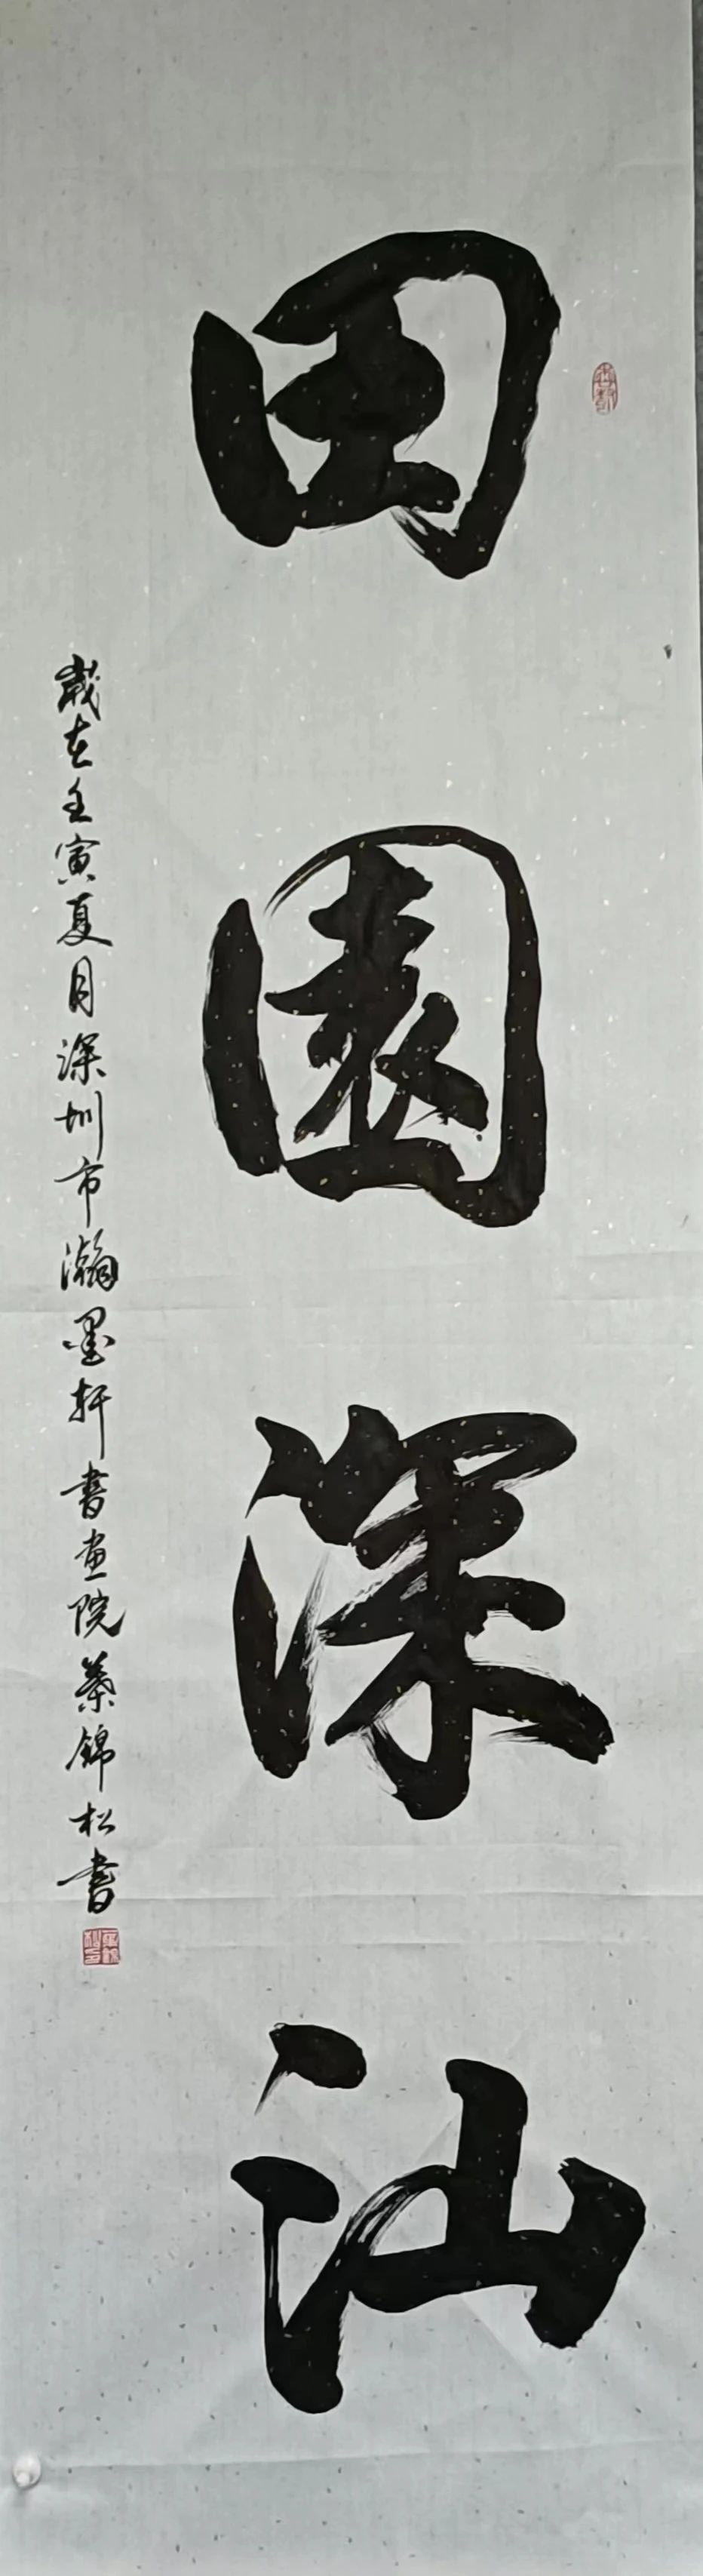 田園深汕
歲在壬寅夏月深圳市瀚墨軒書畫院葉錦松書